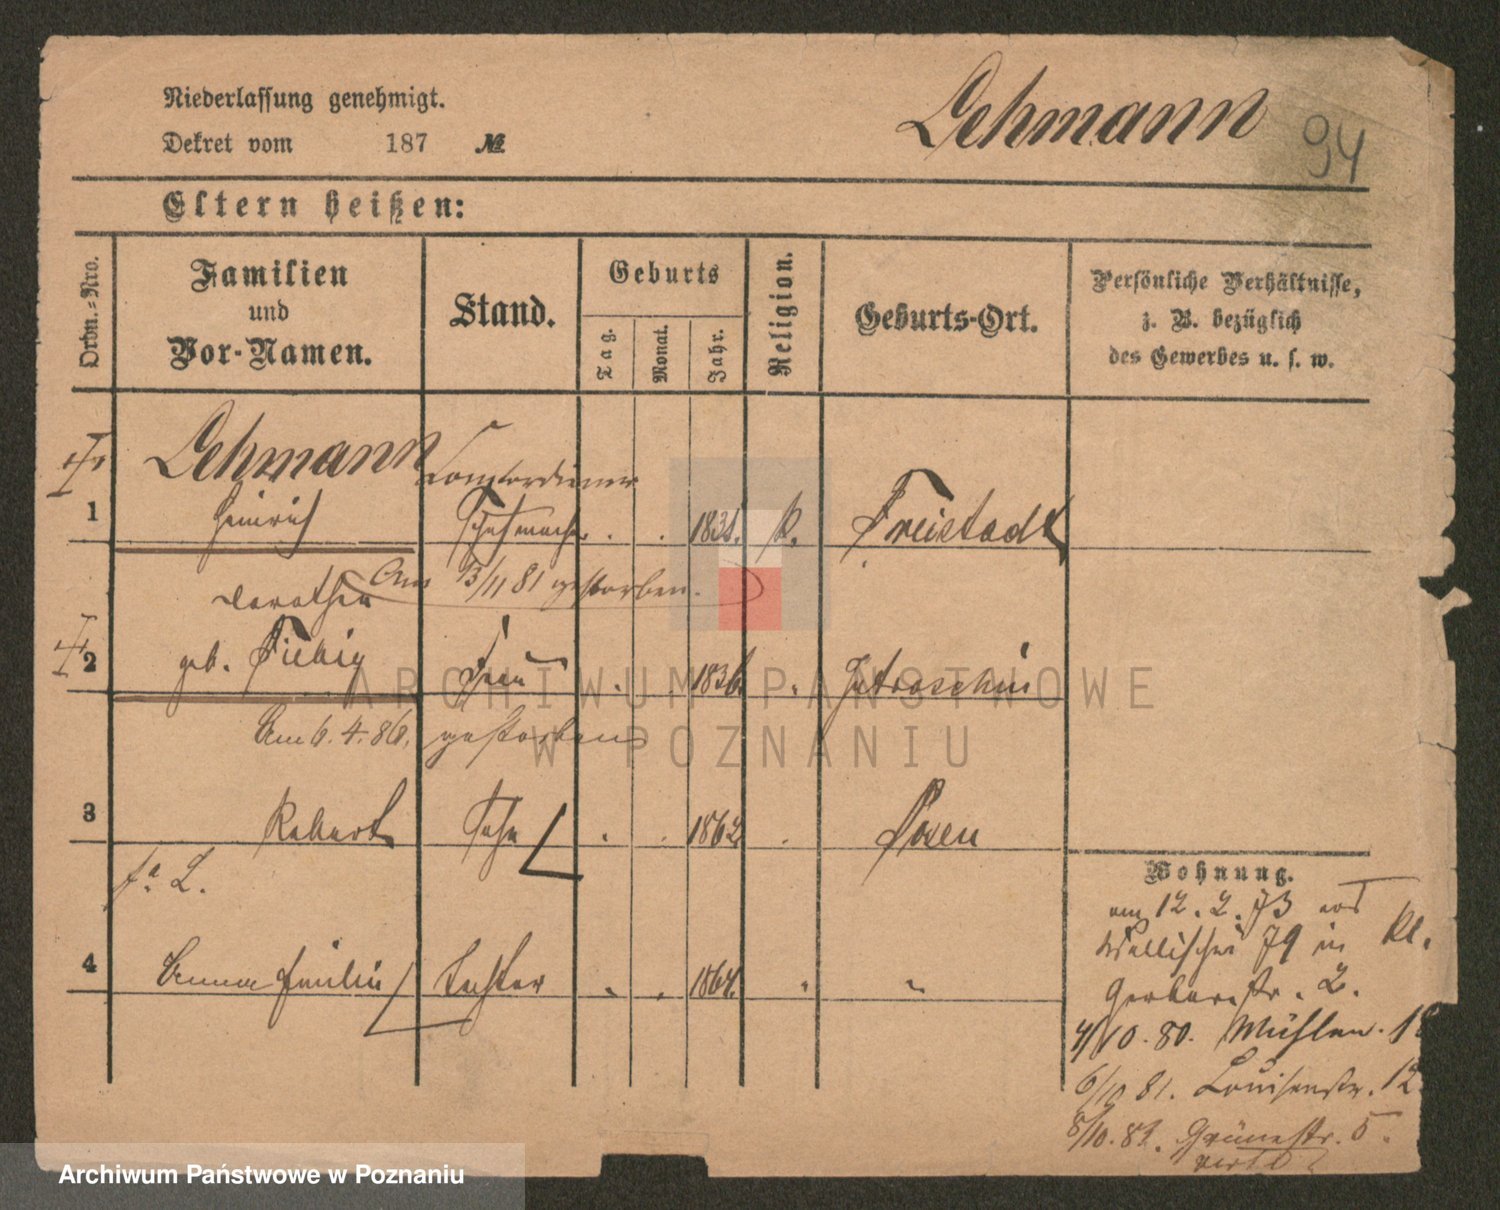 Niederlassung genehmigt.
Dekret vom 187 №
Lehmann 94
Eltern heißen:
Ordn.-Nro.
Familien
und
Vor-Namen.
Stand.
Geburts
Tag.
Monat.
Jahr.
Religion.
Geburts-Ort.
Persönliche Verhältnisse,
z. B. bezüglich
des Gewerbes u. s. w.
Lehmann
1 Heinrich Schuhmacher 1831. K. Freistadt
Am 13/11 81 gestorben.
Dorothea
2 geb. Fiebig Frau 1836. " Jutroschin
Am 6.4.86. gestorben
3 Robert Sohn 1862 Posen
fa. L.
4 Anna Emilie Tochter 1864. " "
Wohnung.
am 12.2.73 aus
Wallischei 79 in Kl.
Gerberstr. 2.
4/10.80. Mühlen.
6/10 81. Louisenstr. 12
8/10.82. Grünestr. 5.
ARCHIWUM PAŃSTWOWE
W POZNANIU
Archiwum Państwowe w Poznaniu